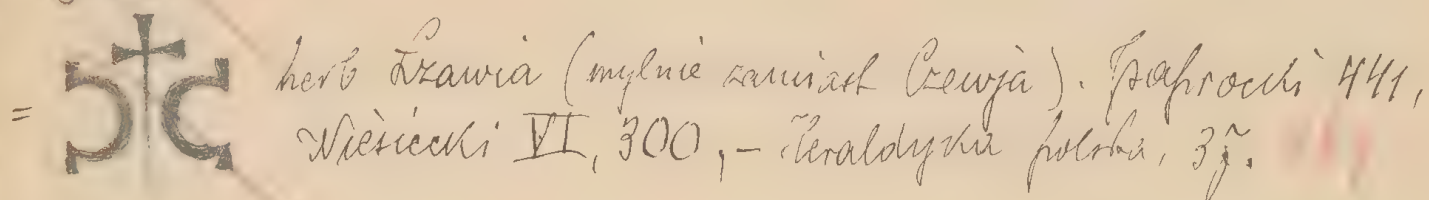 = herb Łzawia (mylnie zamiast Czewja). Paprocki 441,
Niesiecki VI, 300, – Heraldyka polska, 37.